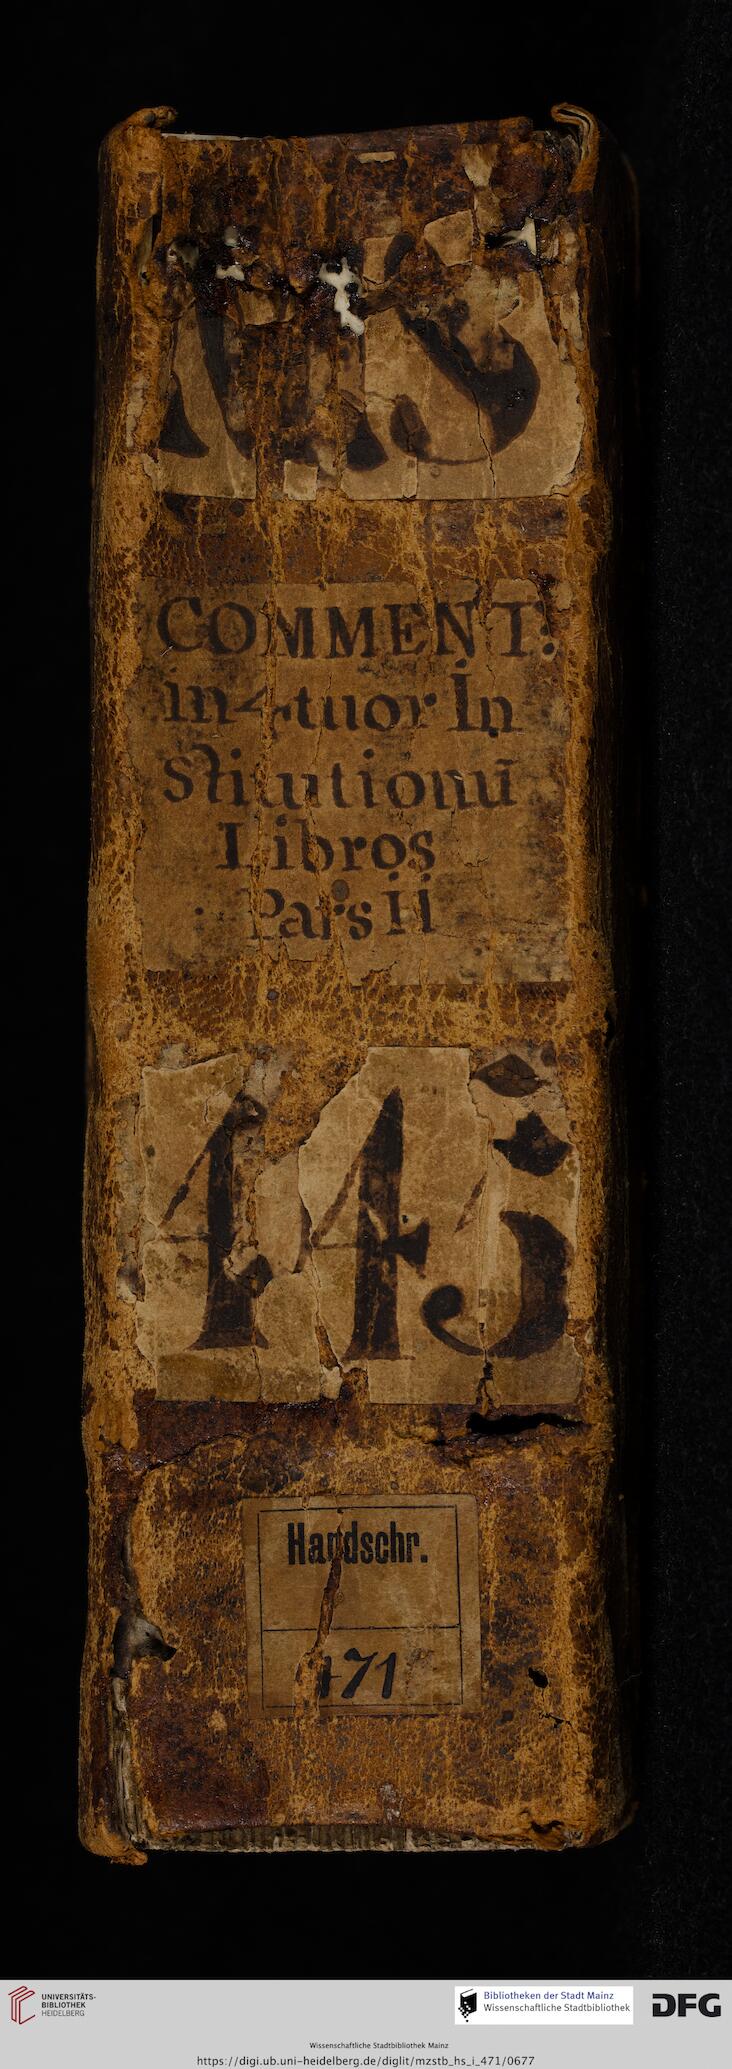 MS
COMMENT:
in 4tuor In
stitutionū
Libros
Pars II
Handschr.
471
UNIVERSITÄTS-
BIBLIOTHEK
HEIDELBERG
Bibliotheken der Stadt Mainz
Wissenschaftliche Stadtbibliothek
DFG
Wissenschaftliche Stadtbibliothek Mainz
https://digi.ub.uni-heidelberg.de/diglit/mzstb_hs_i_471/0677